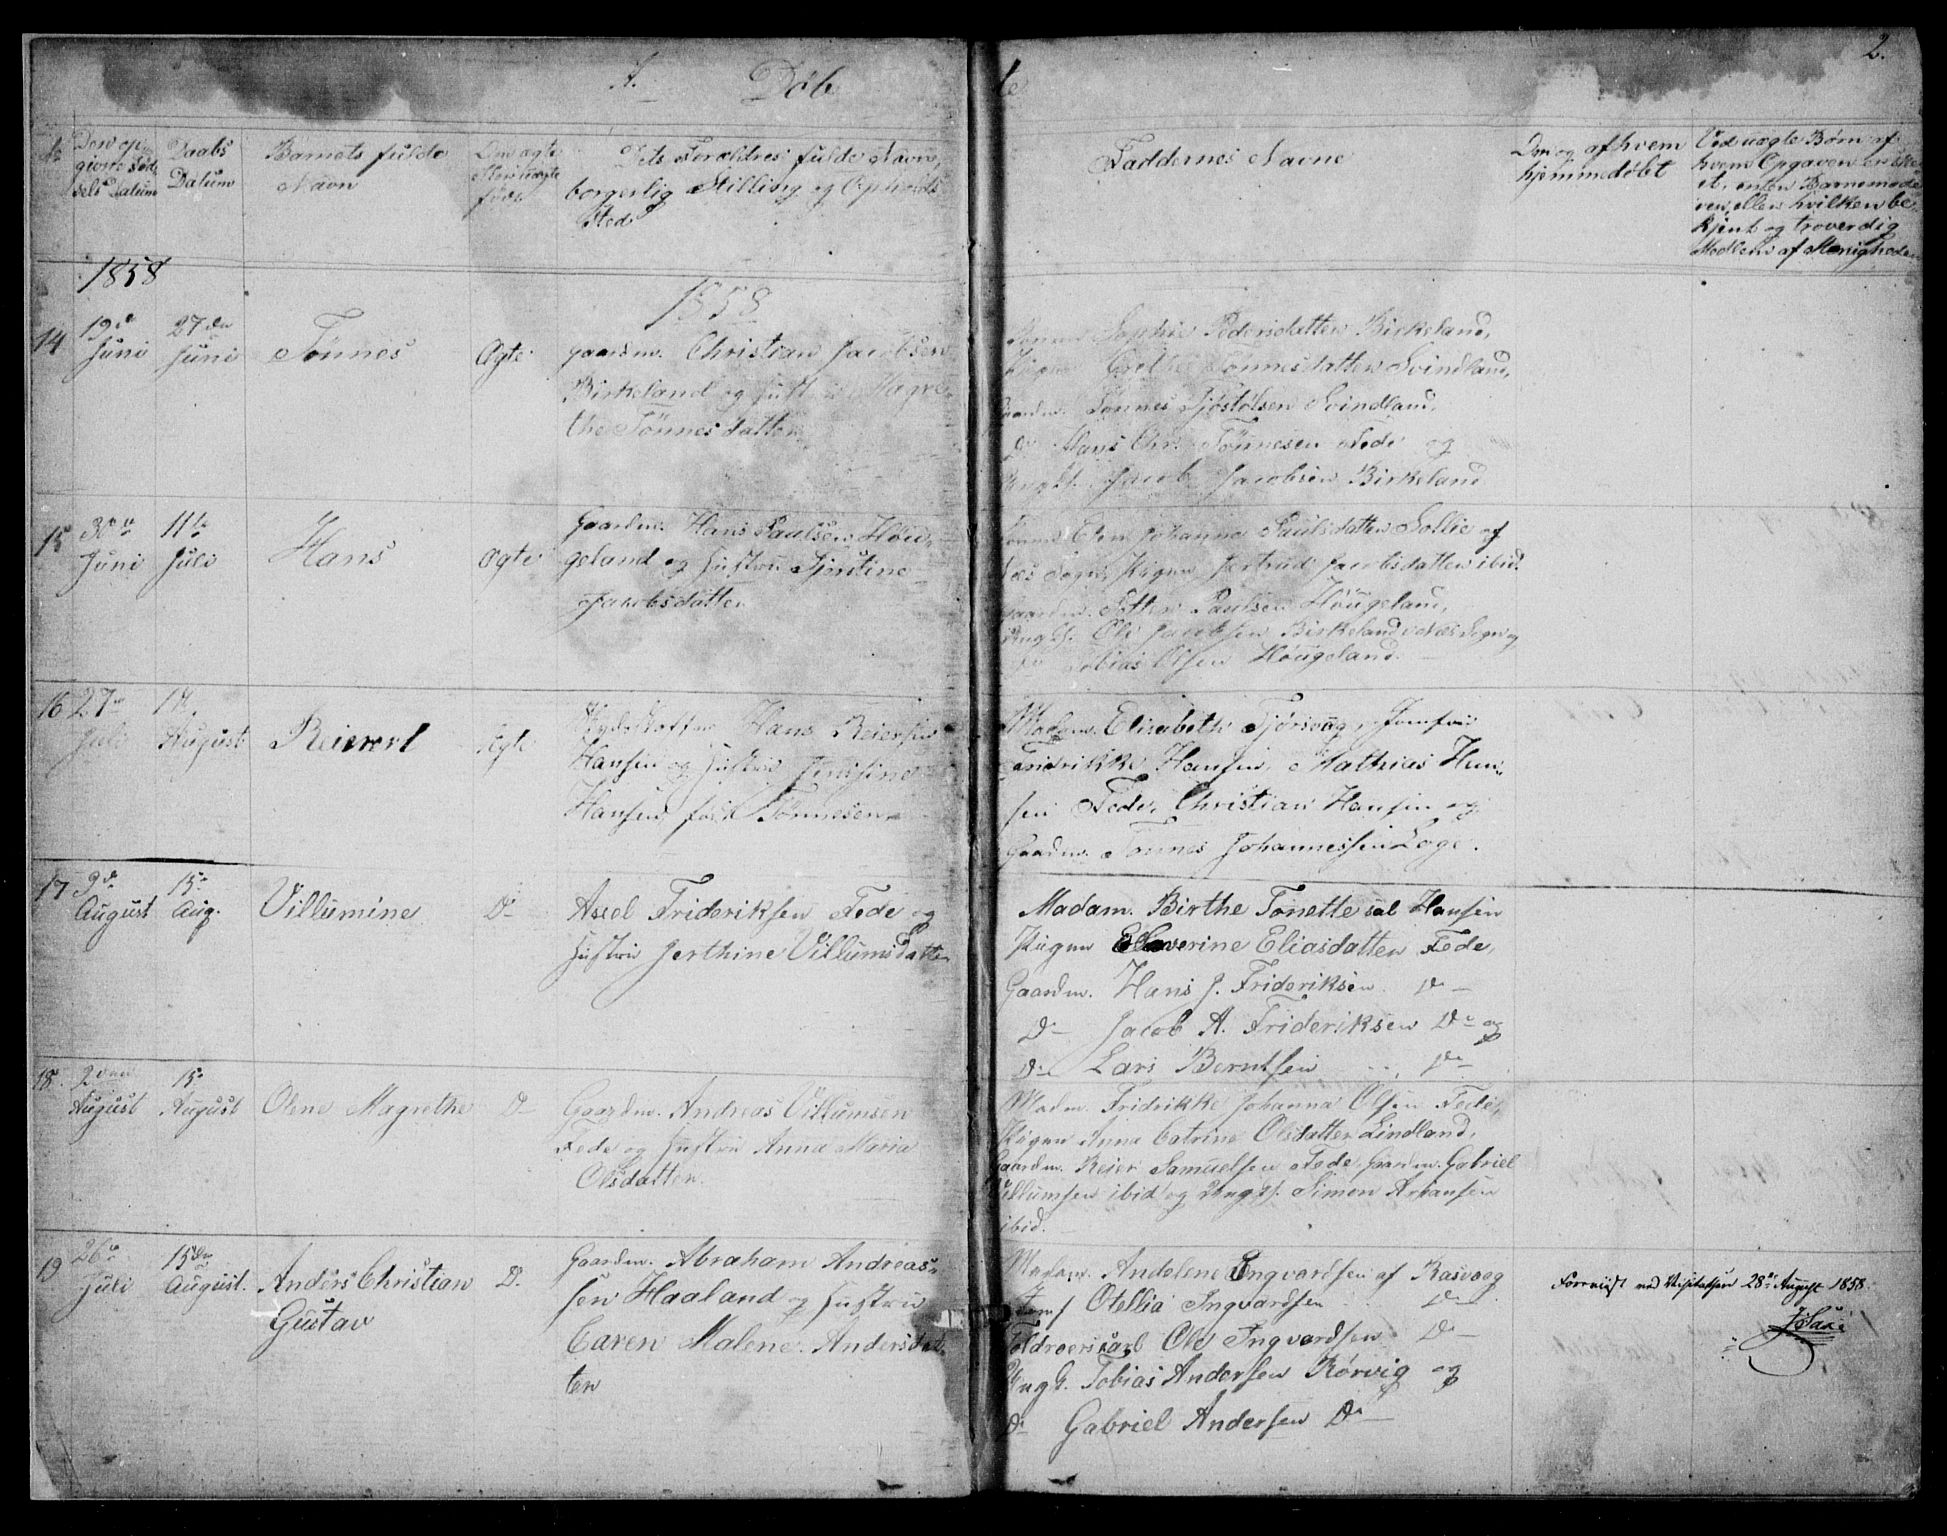 2.
A. Døbte
No
Den op-
givne Fød-
sels Datum
Daabs
Datum
Barnets fulde
Navn
Om ægte
eller uægte
født
Dets Forældres fulde Navn,
borgerlig Stilling og Opholds
Sted
Faddernes Navne
Om og af hvem
hjemmedøbt
Ved uægte Børn af
hvem Opgaven er ske-
et, enten Barnemode-
ren, eller hvilken be-
kjent og troverdig
Medlem af Menigheden
1858
1858
14
19de
Juni
27den
Juni
Tönnes
Ægte
gaardm. Christian Jacobsen
Birkeland og Hustru Magre-
the Tönnesdatter
Sophie Pedersdatter Birkeland,
Pigen Grethe Tönnesdatter Svindland,
Gaardm. Tönnes Tjöstolsen Svindland,
Do Hans Chr. Tönnesen Fede og
Ungk. Jacob Jacobsen Birkeland
15
30te
Juni
11te
Juli
Hans
Ægte
Gaardm. Hans Paulsen Höu-
geland og Hustru
Jacobsdatter
Johanna Paulsdatter Sollie af
Næs Sogn, Pigen Gertrud Jacobsdatter ibid.
Gaardm. Paulsen Höugeland,
Ungk. Ole Jacobsen Birkeland i Næs Sogn og
Do Tobias Olsen Höugeland.
16
27de
Juli
August
Reinert
Ægte
Hans Reiersen
Hansen og Hustru
Hansen, född Tönnesen
Madam Elisabeth Tjørsvaag, Jomfru
Fridrikke Hansen, Mathias Han-
sen Fede, Christian Hansen og
Gaardm. Tönnes Johannessen Loge.
17
9de
August
15de
Aug.
Villumine
Do
Assel Frideriksen Fede og
Hustru Jerthine Villumsdatter
Madam. Birthe Tonette sal Hansen
Pigen Eliasdatter Fede,
Gaardm. Hans J. Frideriksen Do
Do Jacob A. Frideriksen Do og
Do Lars Berntsen Do
18
2den
August
15de
August
Olene Magrethe
Do
Gaardm. Andreas Villumsen
Fede og Hustru Anna Maria
Olsdatter.
Madm. Fridrikke Johanna Olsen Fede,
Pigen Anna Catrine Olsdatter Lindland,
Gaardm. Reier Samuelsen Fede, Gaardm. Gabriel
Villumsen ibid og Ungk. Simon
ibid.
19
26de
Juli
15den
August.
Anders Christian
Gustav
Do
Gaardm. Abraham Andreas-
sen Haaland og Hustru
Caren Malene Andersdat-
ter
Madam. Andolene Ingvardsen af Rasvaag
Jomf Otellia Ingvardsen Do
Toldroerskarl Ole Ingvardsen Do
Ungk. Tobias Andersen Rørvig og
Do Gabriel Andersen Do
Foreviist ved Visitatsen 28de August 1858.